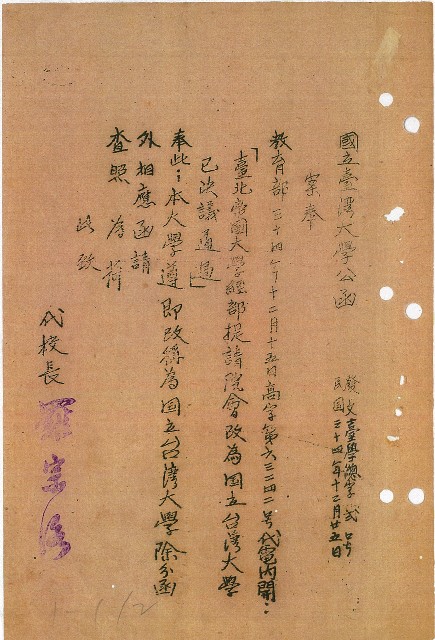 國立臺灣大學公函
發文臺學總字弍号
民国三十四年十二月廿五日
案奉
教育部三十四年十二月十五日高字第六三二四二号代電內開：
「臺北帝國大學經部提請院會改為国立台灣大學
已決議通過」
奉此：本大學遵即改稱為国立台湾大學除分函
外相應函請
查照為荷
此致
代校長 羅宗洛